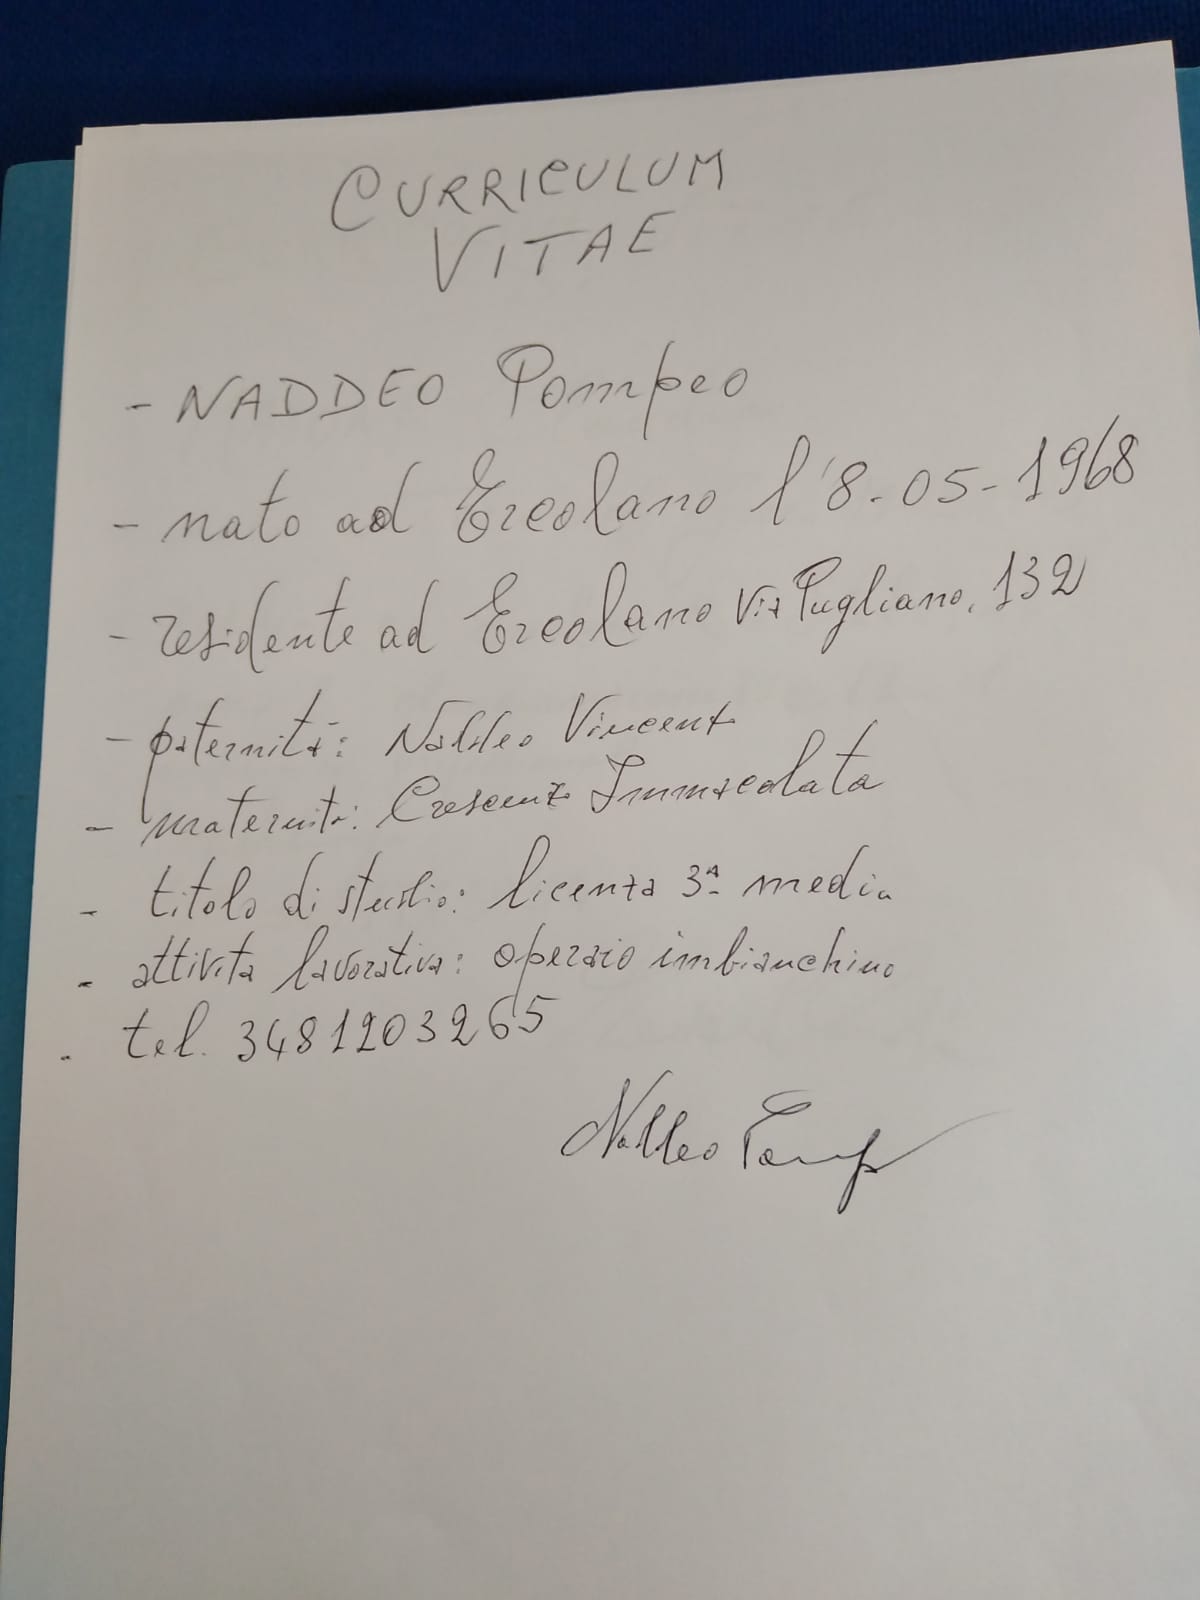 CURRICULUM
VITAE
- NADDEO Pompeo
- nato ad Ercolano l'8-05-1968
- residente ad Ercolano Via Pugliano, 132
- paternità: Naddeo Vincent
- maternità: Immacolata
- titolo di studio: licenza 3ª media
- attivita lavorativa: operaio imbianchino
- tel. 3481203265
Naddeo Pomp